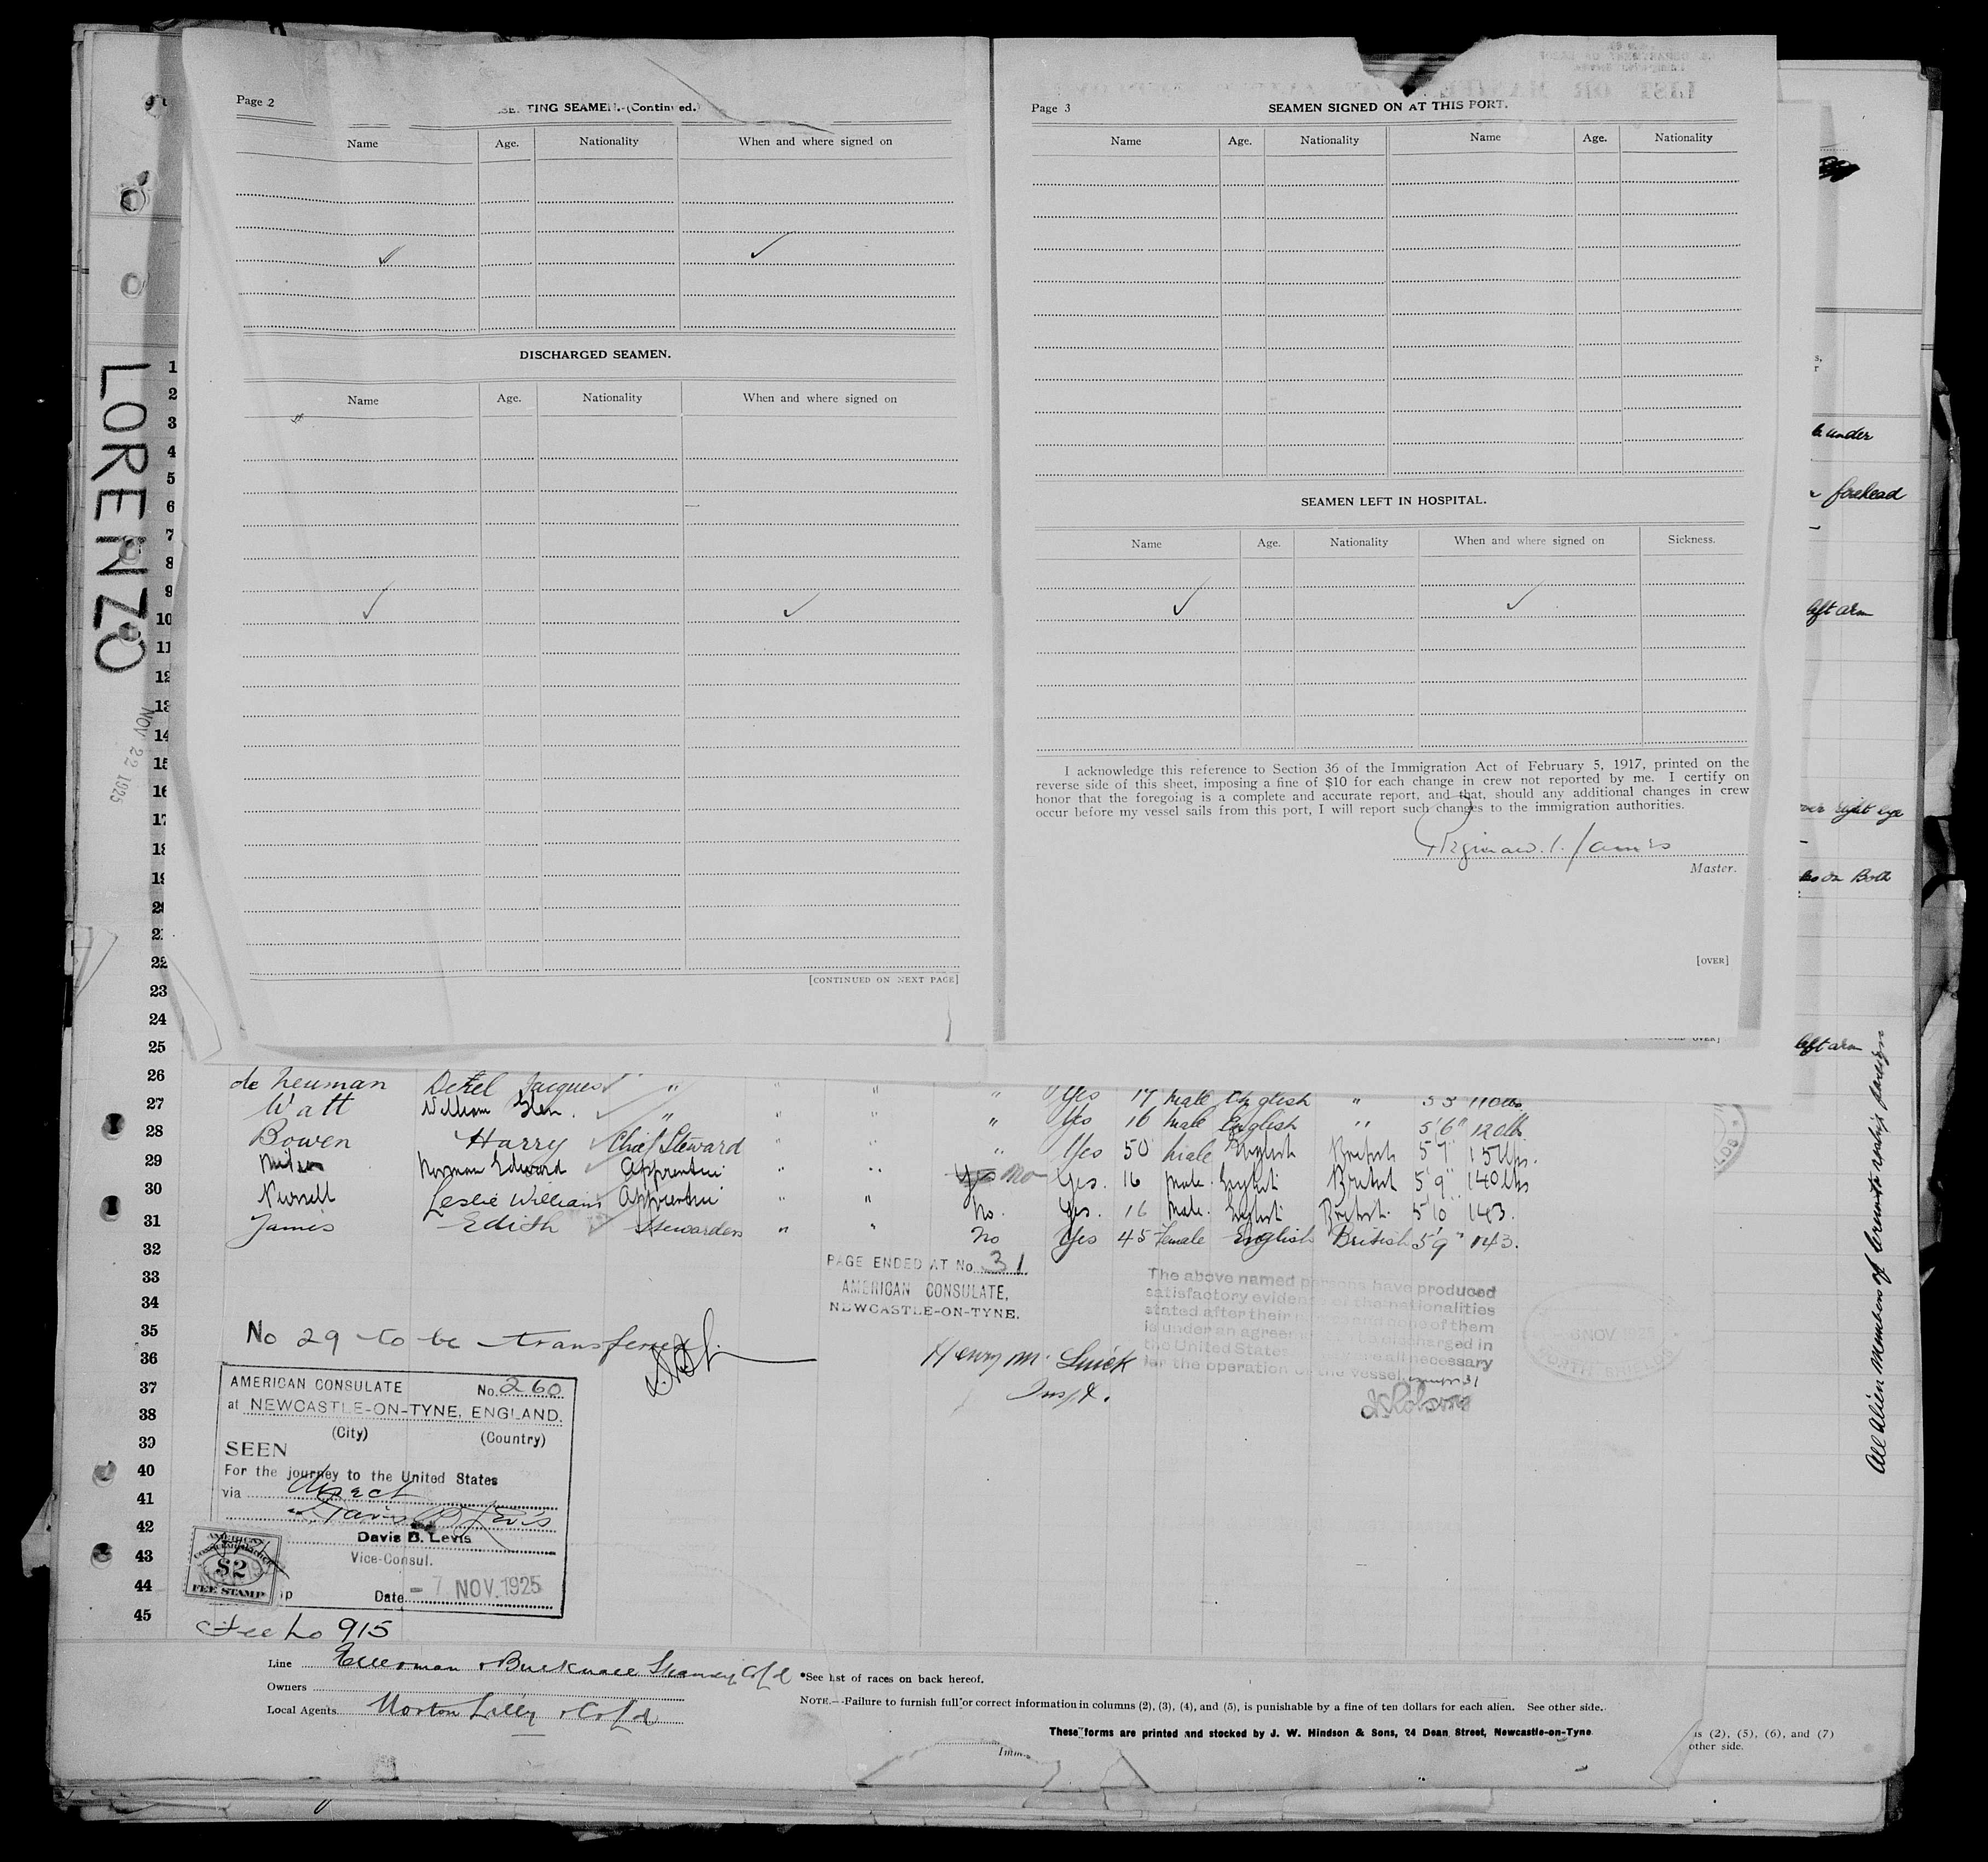 LORENZO
NOV 22 1925
Page 2
TING SEAMEN.-(Continued.)
Name Age. Nationality When and where signed on
DISCHARGED SEAMEN.
Name Age. Nationality When and where signed on
[CONTINUED ON NEXT PAGE]
Page 3
SEAMEN SIGNED ON AT THIS PORT.
Name Age. Nationality Name Age. Nationality
SEAMEN LEFT IN HOSPITAL.
Name Age. Nationality When and where signed on Sickness.
I acknowledge this reference to Section 36 of the Immigration Act of February 5, 1917, printed on the
reverse side of this sheet, imposing a fine of $10 for each change in crew not reported by me. I certify on
honor that the foregoing is a complete and accurate report, and that, should any additional changes in crew
occur before my vessel sails from this port, I will report such changes to the immigration authorities.
Reginald. I. James
Master.
[OVER]
under
forehead
left arm
over right eye
on Both
left arm
1
2
3
4
5
6
7
8
9
10
11
12
13
14
15
16
17
18
19
20
21
22
23
24
25
26 de Neuman Jacques " " " Yes 17 male English " 5'5 110lbs
27 Watt William Glen. " " " Yes 16 male English " 5'6" 120lb
28 Bowen Harry Chief Steward " " " Yes 50 male English British 5'7"
29 Norman Edward Apprentice " " Yes No Yes. 16 male. English British 5'9" 140lbs
30 Leslie William Apprentice " " No. Yes. 16 male. English British. 5'10" 143.
31 James Edith Stewardess " " No Yes 45 Female English British 5'9" 143.
32
33
34
35
36
37
38
39
40
41
42
43
44
45
PAGE ENDED AT No. 31
AMERICAN CONSULATE,
NEWCASTLE-ON-TYNE.
The above named persons have produced
satisfactory evidence of the nationalities
stated after their names and none of them
is under an agreement to be discharged in
the United States all necessary
for the operation of the vessel
No 29 to be transferred
Henry M. Quick
Inspt.
AMERICAN CONSULATE No. 260
at NEWCASTLE-ON-TYNE, ENGLAND.
(City) (Country)
SEEN
For the journey to the United States
via direct
Davis B. Levis
Davis B. Levis
Vice-Consul.
Date - 7 NOV. 1925
AMERICAN
$2
FEE STAMP
Fee No 915
Line Ellerman & Bucknall Steamship Co Ld
Owners
Local Agents Norton Lilly & Co Ld
*See list of races on back hereof.
NOTE.--Failure to furnish full or correct information in columns (2), (3), (4), and (5), is punishable by a fine of ten dollars for each alien. See other side.
These forms are printed and stocked by J. W. Hindson & Sons, 24 Dean Street, Newcastle-on-Tyne
(2), (5), (6), and (7)
other side.
All Alien Members of crew